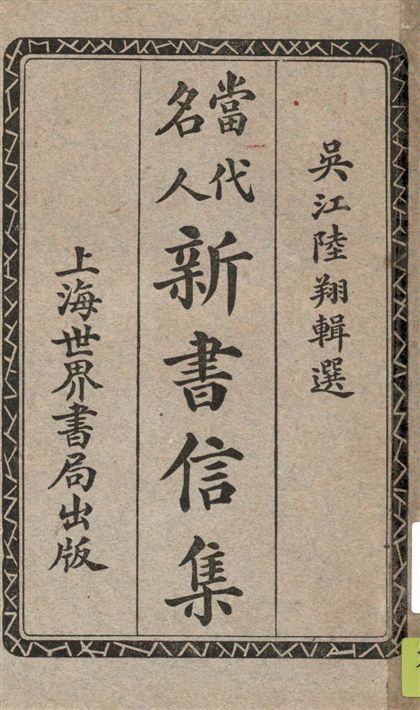 吳江陸翔輯選
當代名人新書信集
上海世界書局出版